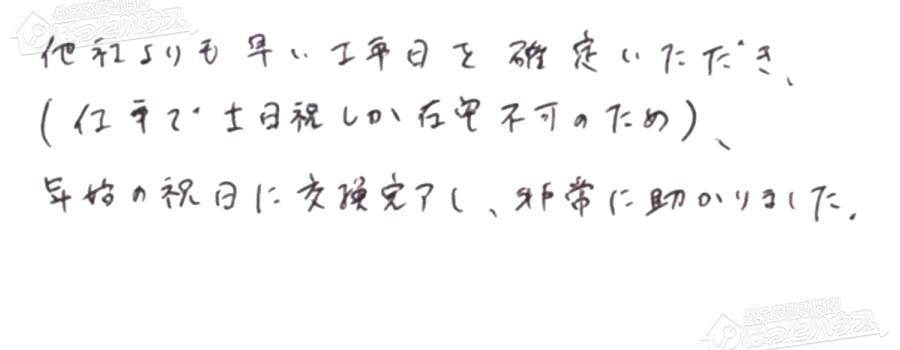 他社よりも早い工事日を確定いただき、
(仕事で土日祝しか在宅不可のため)、
年始の祝日に交換完了し、非常に助かりました。
住宅設備専門店
ほっとハウス
ほっとハウス